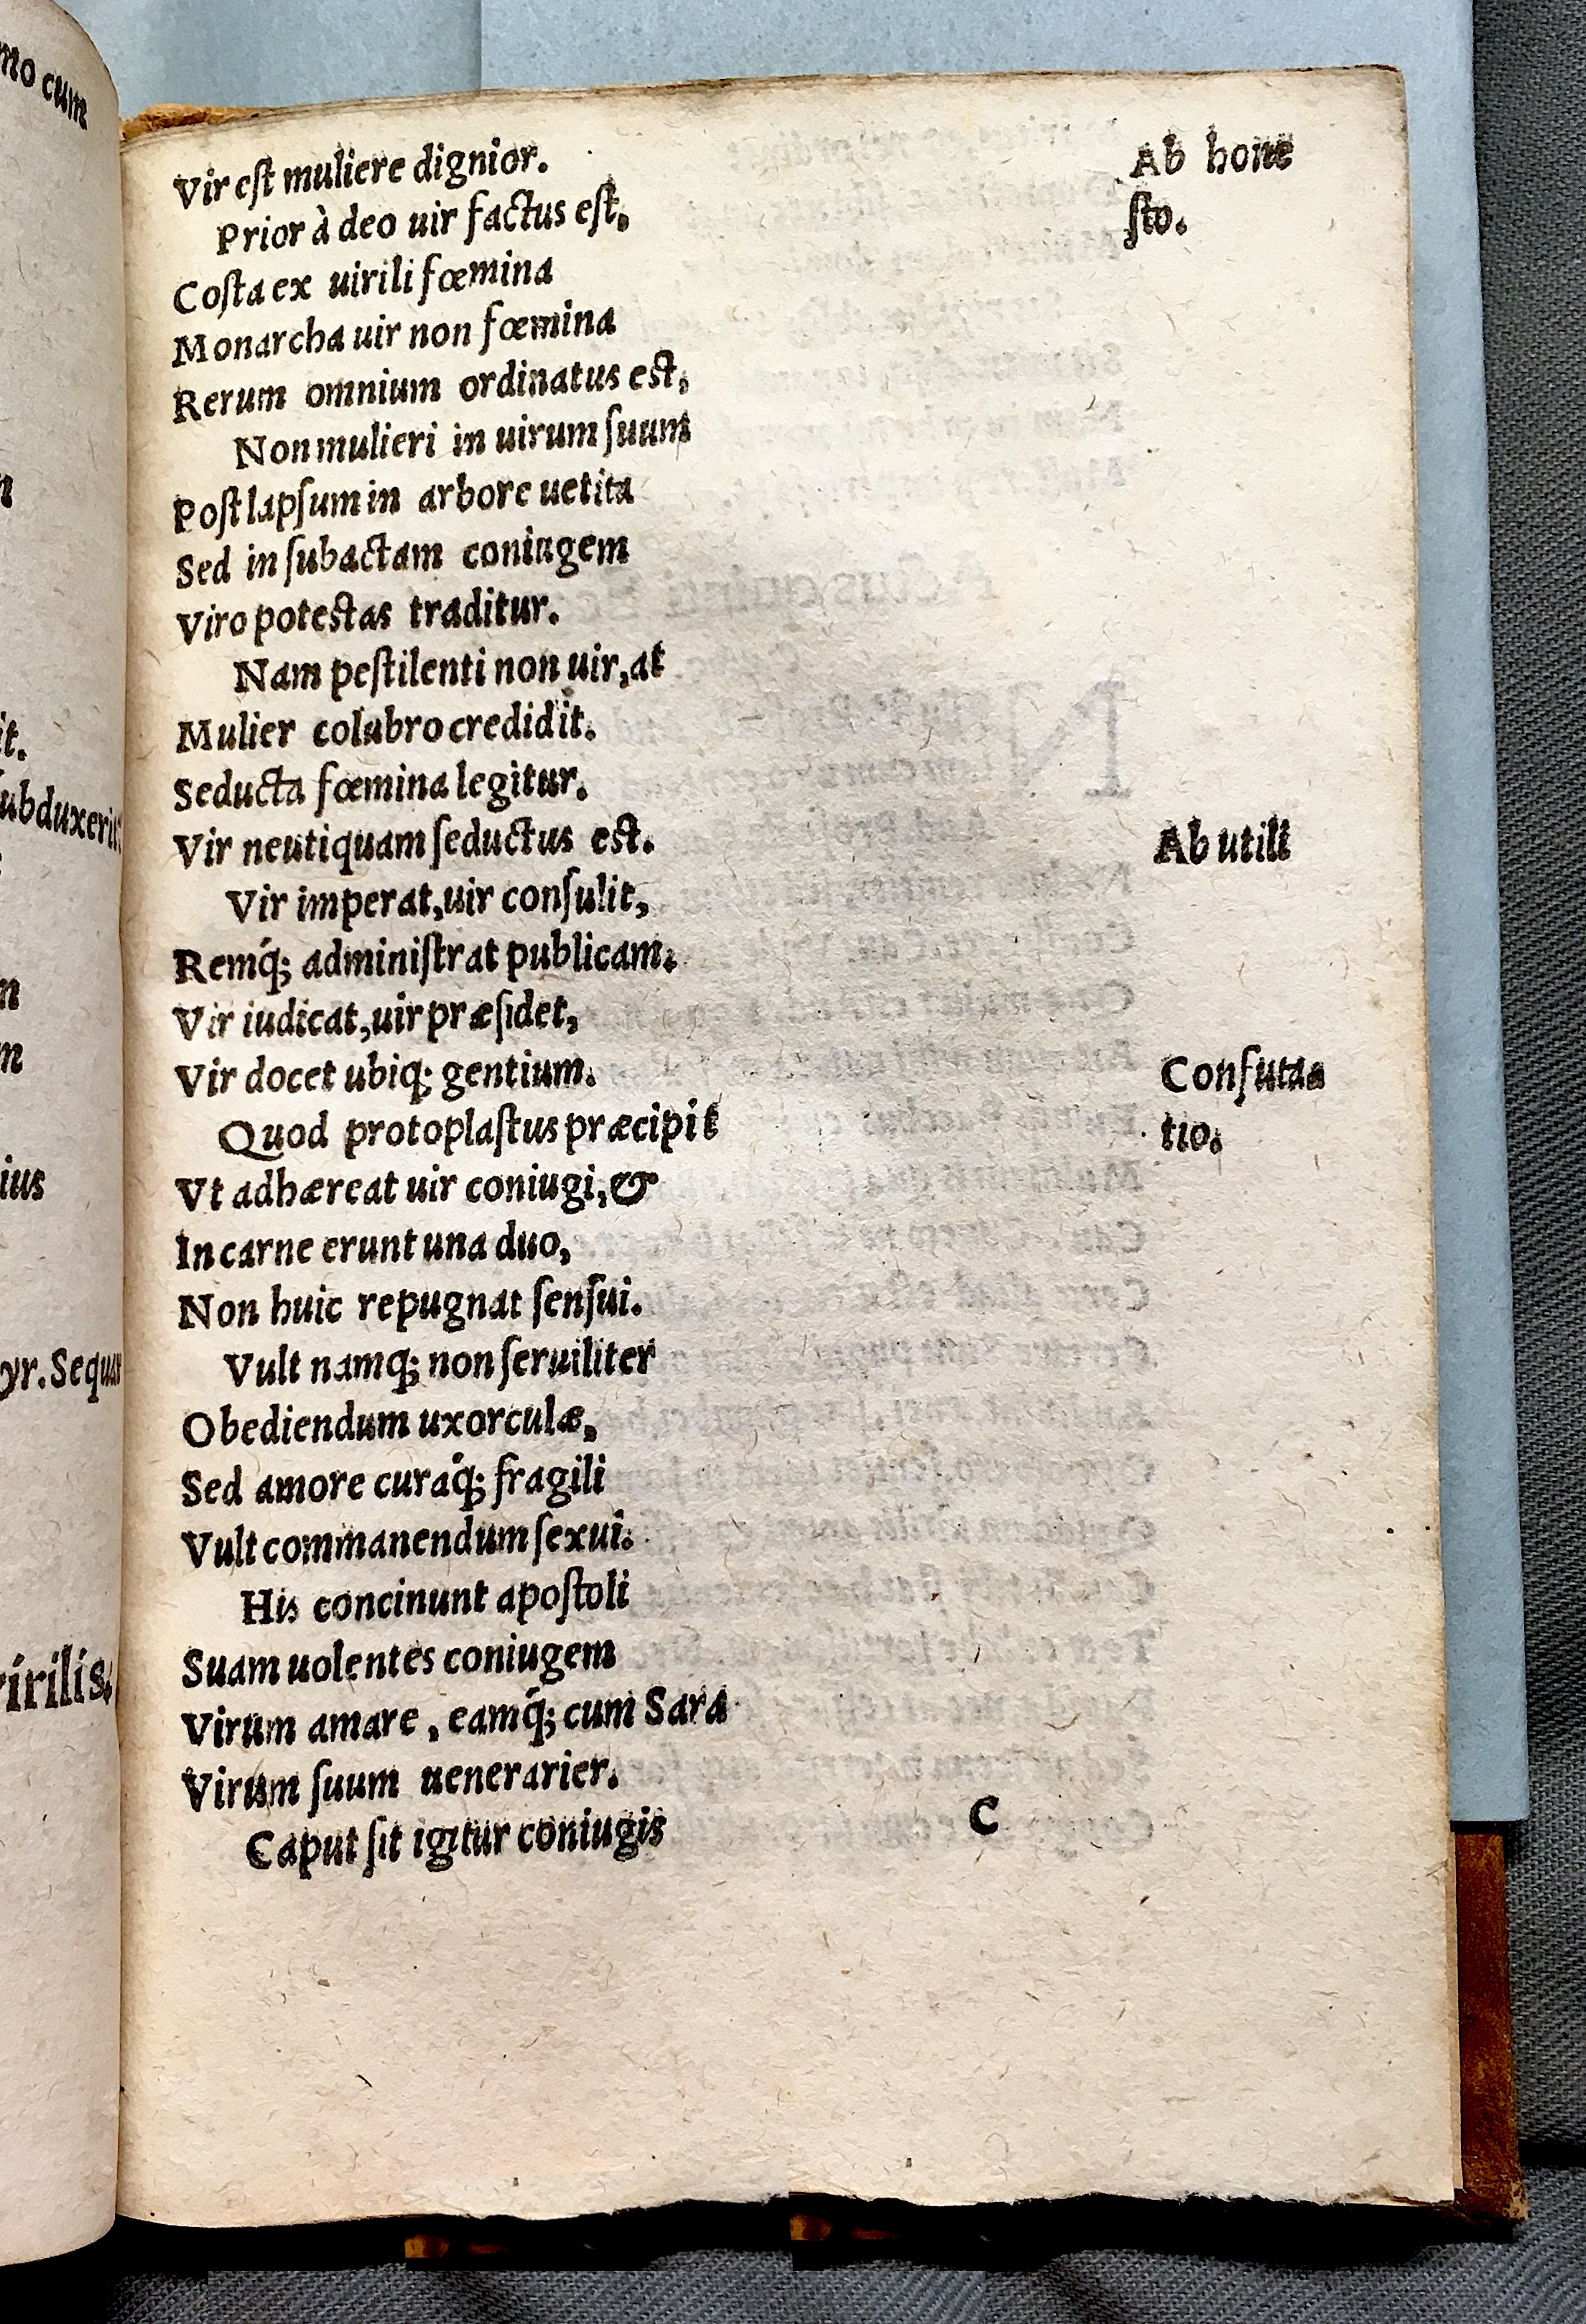 mo cum
n
it.
ubduxerit
n
m
ius
yr. Sequar
virilis,
Vir eſt muliere dignior.
Prior à deo uir factus eſt,
Coſta ex uirili fœmina
Monarcha uir non fœmina
Rerum omnium ordinatus est,
Non mulieri in uirum ſuum
Poſt lapſum in arbore uetita
Sed in ſubactam coniugem
Viro potestas traditur.
Nam peſtilenti non uir, at
Mulier colubro credidit.
Seducta fœmina legitur.
Vir neutiquam ſeductus est.
Vir imperat, uir conſulit,
Remq́; adminiſtrat publicam.
Vir iudicat, uir præſidet,
Vir docet ubiq; gentium.
Quod protoplaſtus præcipit
Vt adhæreat uir coniugi, &
In carne erunt una duo,
Non huic repugnat ſenſui.
Vult namq; non ſeruiliter
Obediendum uxorculæ,
Sed amore curaq́; fragili
Vult commanendum ſexui.
His concinunt apoſtoli
Suam uolentes coniugem
Virum amare, eamq́; cum Sara
Virum ſuum uenerarier.
Caput ſit igitur coniugis
C
Ab hone
ſto.
Ab utili
Confuta-
tio.